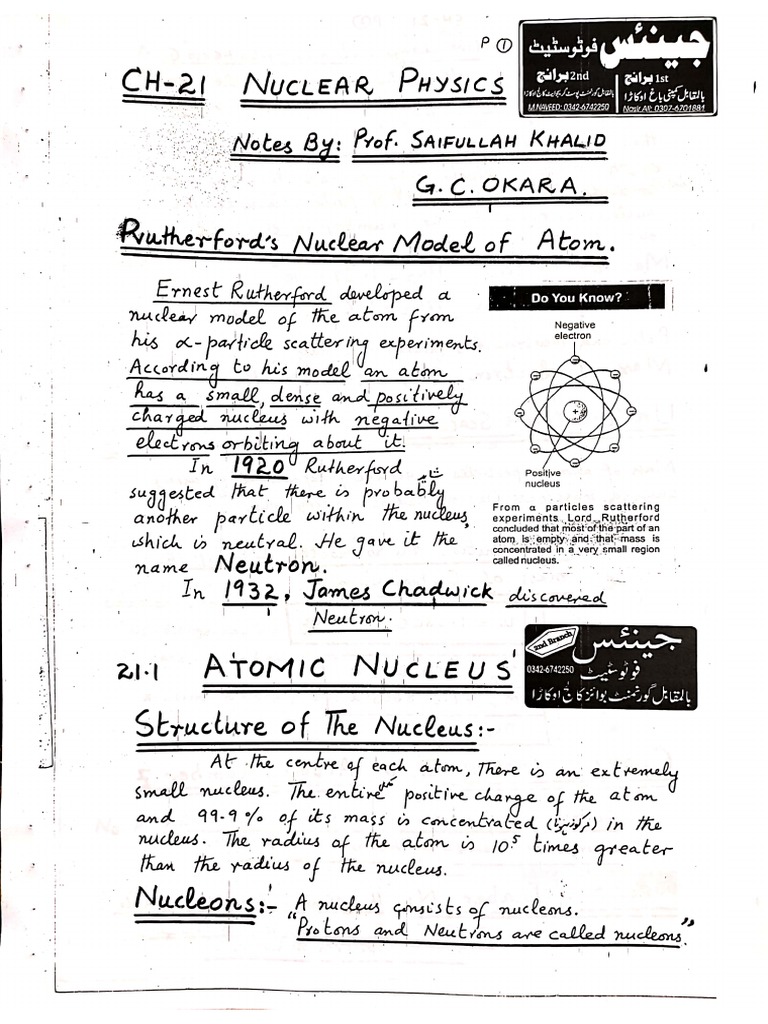 P ①
CH-21 NUCLEAR PHYSICS
جینئس فوٹوسٹیٹ
2nd برانچ
1st برانچ
بالمقابل کمپنی باغ اوکاڑا
M.NAVEED: 0342-6742250
Nasir Ali: 0307-6701884
Notes By: Prof. SAIFULLAH KHALID
G.C. OKARA.
Rutherford's Nuclear Model of Atom.
Ernest Rutherford developed a
nuclear model of the atom from
his α-particle scattering experiments.
According to his model an atom
has a small, dense and positively
charged nucleus with negative
electrons orbiting about it.
In 1920 Rutherford
suggested that there is probably
another particle within the nucleus,
which is neutral. He gave it the
name Neutron.
In 1932, James Chadwick discovered
Neutron.
Do You Know?
Negative
electron
Positive
nucleus
From α particles scattering
experiments Lord Rutherford
concluded that most of the part of an
atom is empty and that mass is
concentrated in a very small region
called nucleus.
2nd Branch
جینئس
0342-6742250
فوٹوسٹیٹ
بالمقابل گورنمنٹ بوائز کالج اوکاڑا
21.1 ATOMIC NUCLEUS
Structure of The Nucleus:-
At the centre of each atom, there is an extremely
small nucleus. The entire positive charge of the atom
and 99.9% of its mass is concentrated in the
nucleus. The radius of the atom is 10⁵ times greater
than the radius of the nucleus.
Nucleons:- A nucleus consists of nucleons.
"Protons and Neutrons are called nucleons."